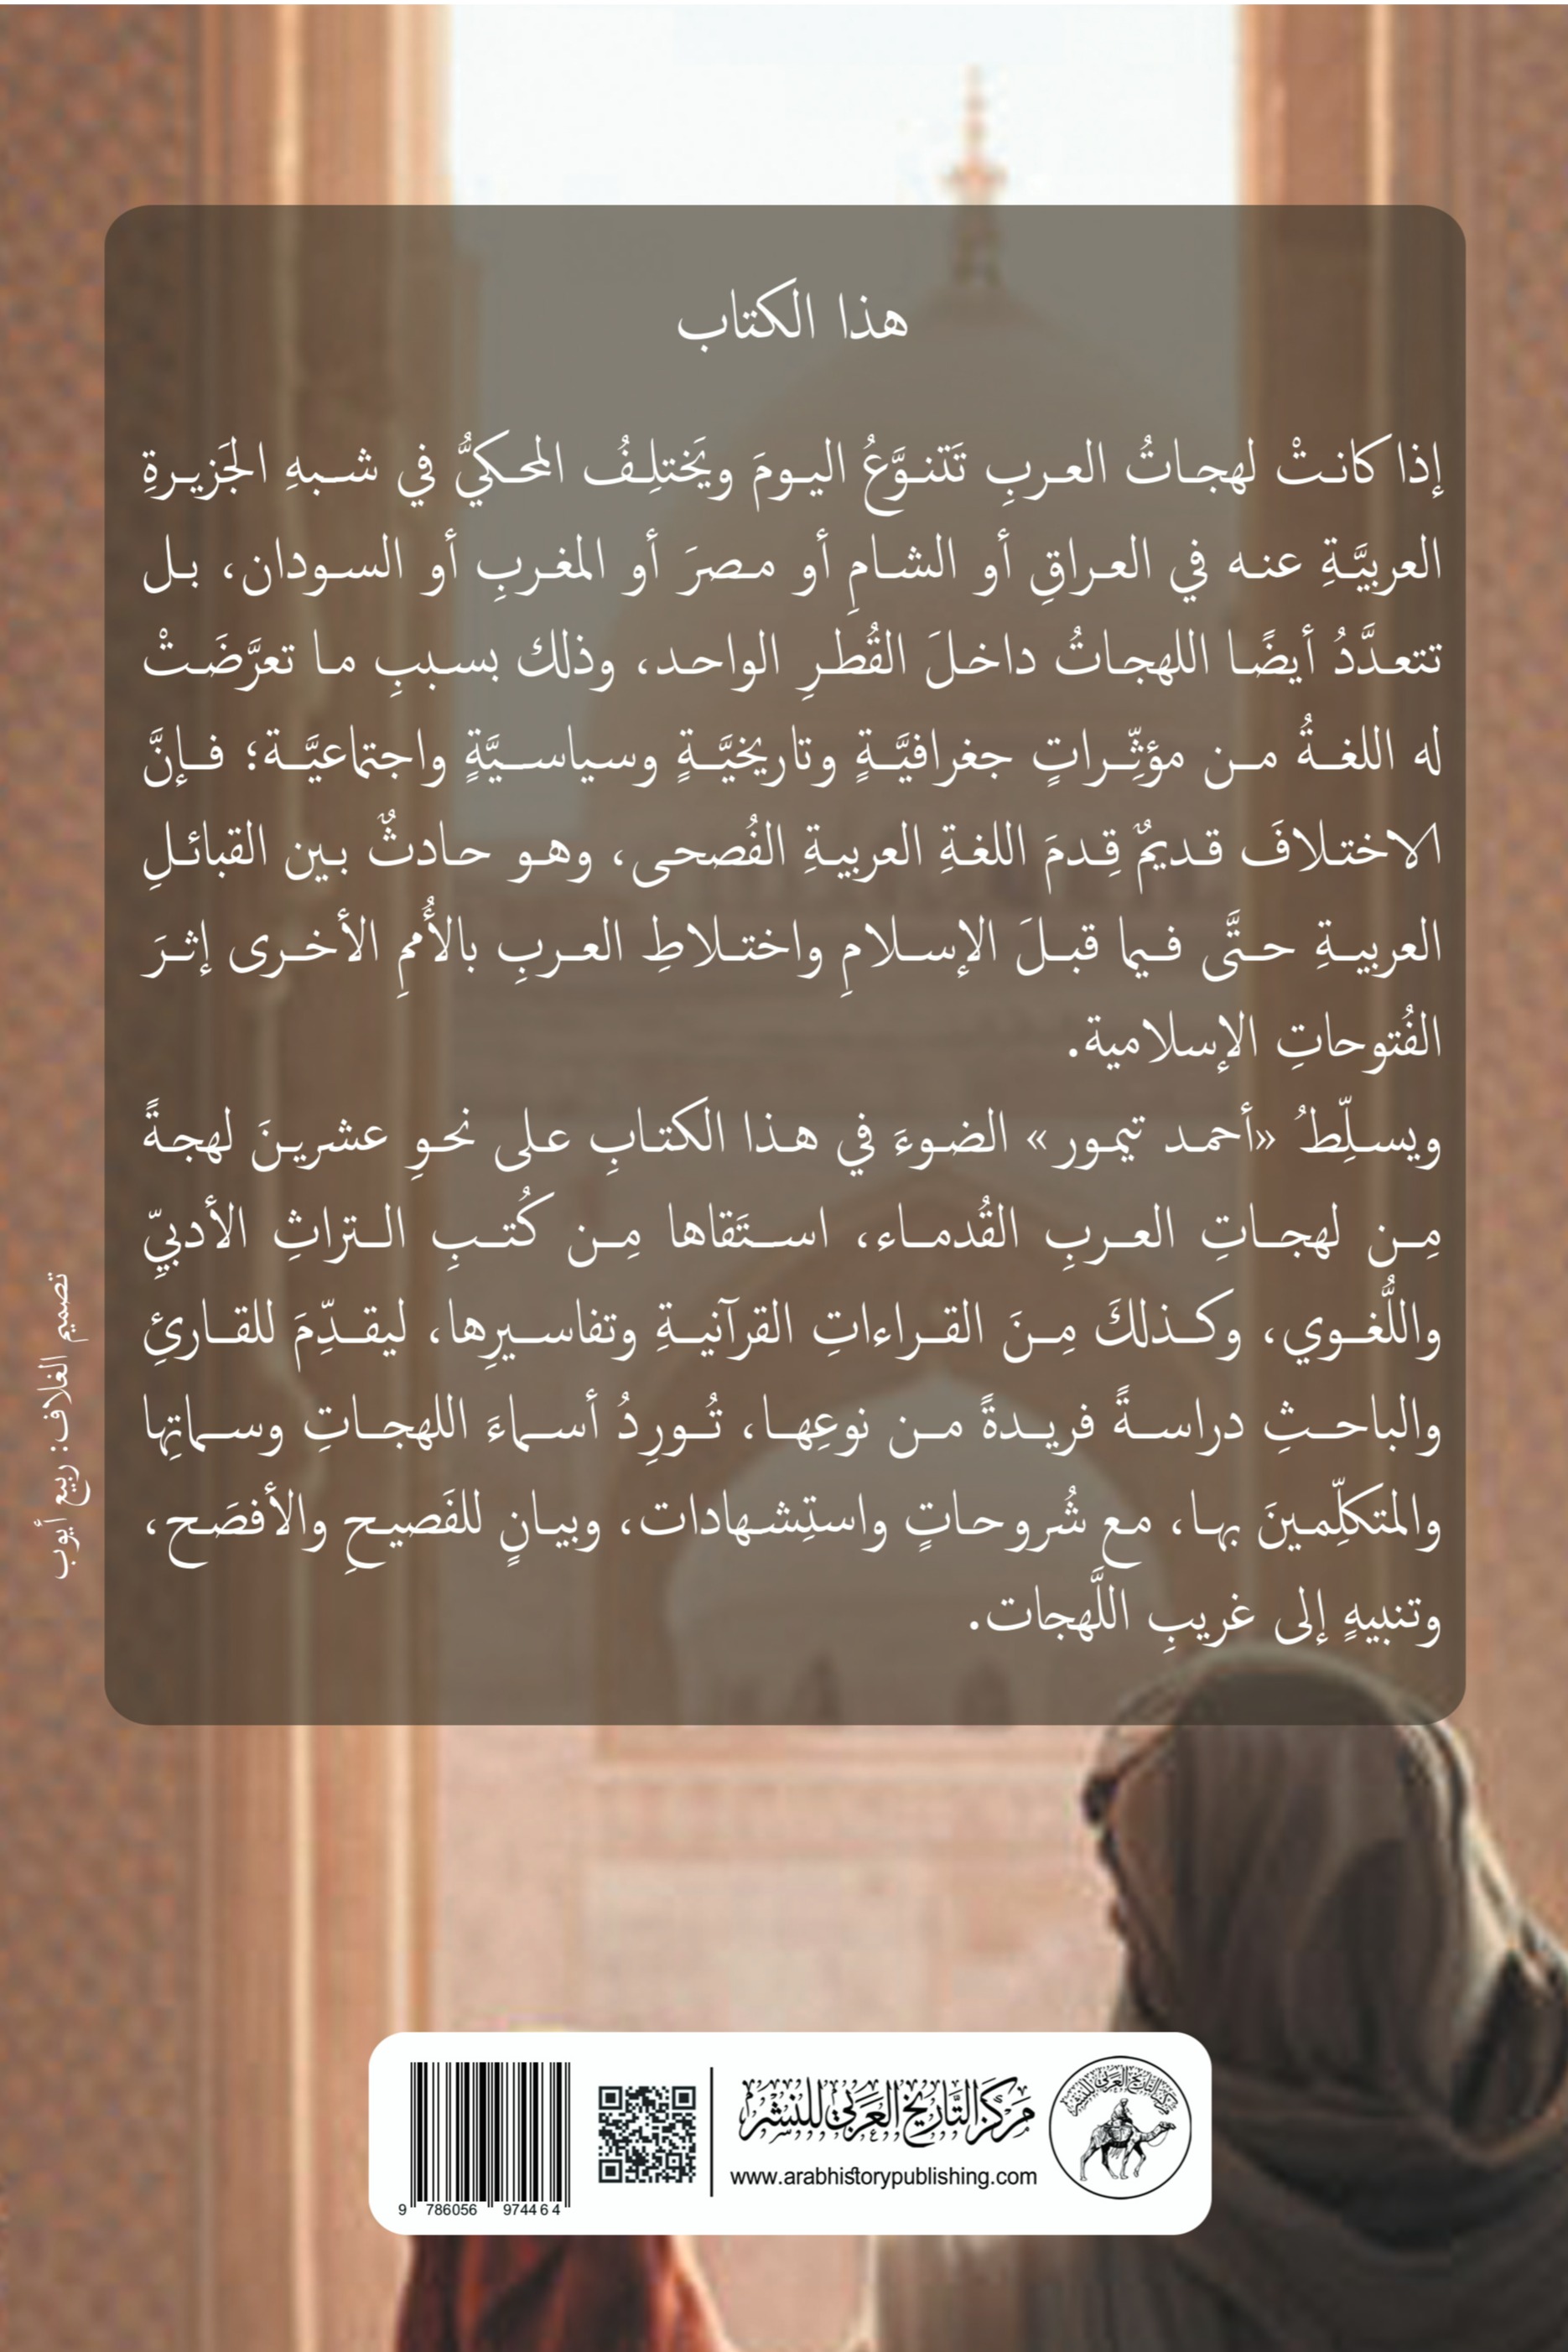 هذا الكتاب
إذا كانتْ لهجاتُ العربِ تَتنوَّعُ اليومَ ويَختلِفُ المحكيُّ في شبهِ الجَزيرةِ
العربيَّةِ عنه في العراقِ أو الشامِ أو مصرَ أو المغربِ أو السودان، بل
تتعدَّدُ أيضًا اللهجاتُ داخلَ القُطرِ الواحد، وذلك بسببِ ما تعرَّضَتْ
له اللغةُ من مؤثِّراتٍ جغرافيَّةٍ وتاريخيَّةٍ وسياسيَّةٍ واجتماعيَّة؛ فإنَّ
الاختلافَ قديمٌ قِدمَ اللغةِ العربيةِ الفُصحى، وهو حادثٌ بين القبائلِ
العربيةِ حتَّى فيما قبلَ الإسلامِ واختلاطِ العربِ بالأُممِ الأخرى إثرَ
الفُتوحاتِ الإسلامية.
ويسلِّطُ «أحمد تيمور» الضوءَ في هذا الكتابِ على نحوِ عشرينَ لهجةً
مِن لهجاتِ العربِ القُدماء، استَقاها مِن كُتبِ التراثِ الأدبيِّ
واللُّغوي، وكذلكَ مِنَ القراءاتِ القرآنيةِ وتفاسيرِها، ليقدِّمَ للقارئِ
والباحثِ دراسةً فريدةً من نوعِها، تُورِدُ أسماءَ اللهجاتِ وسماتِها
والمتكلِّمينَ بها، مع شُروحاتٍ واستِشهادات، وبيانٍ للفَصيحِ والأفصَح،
وتنبيهٍ إلى غريبِ اللَّهجات.
تصميم الغلاف: ربيع أيوب
مركز التاريخ العربي للنشر
مَركَز التَّاريخ العَرَبي للنشر
www.arabhistorypublishing.com
9 786056 974464